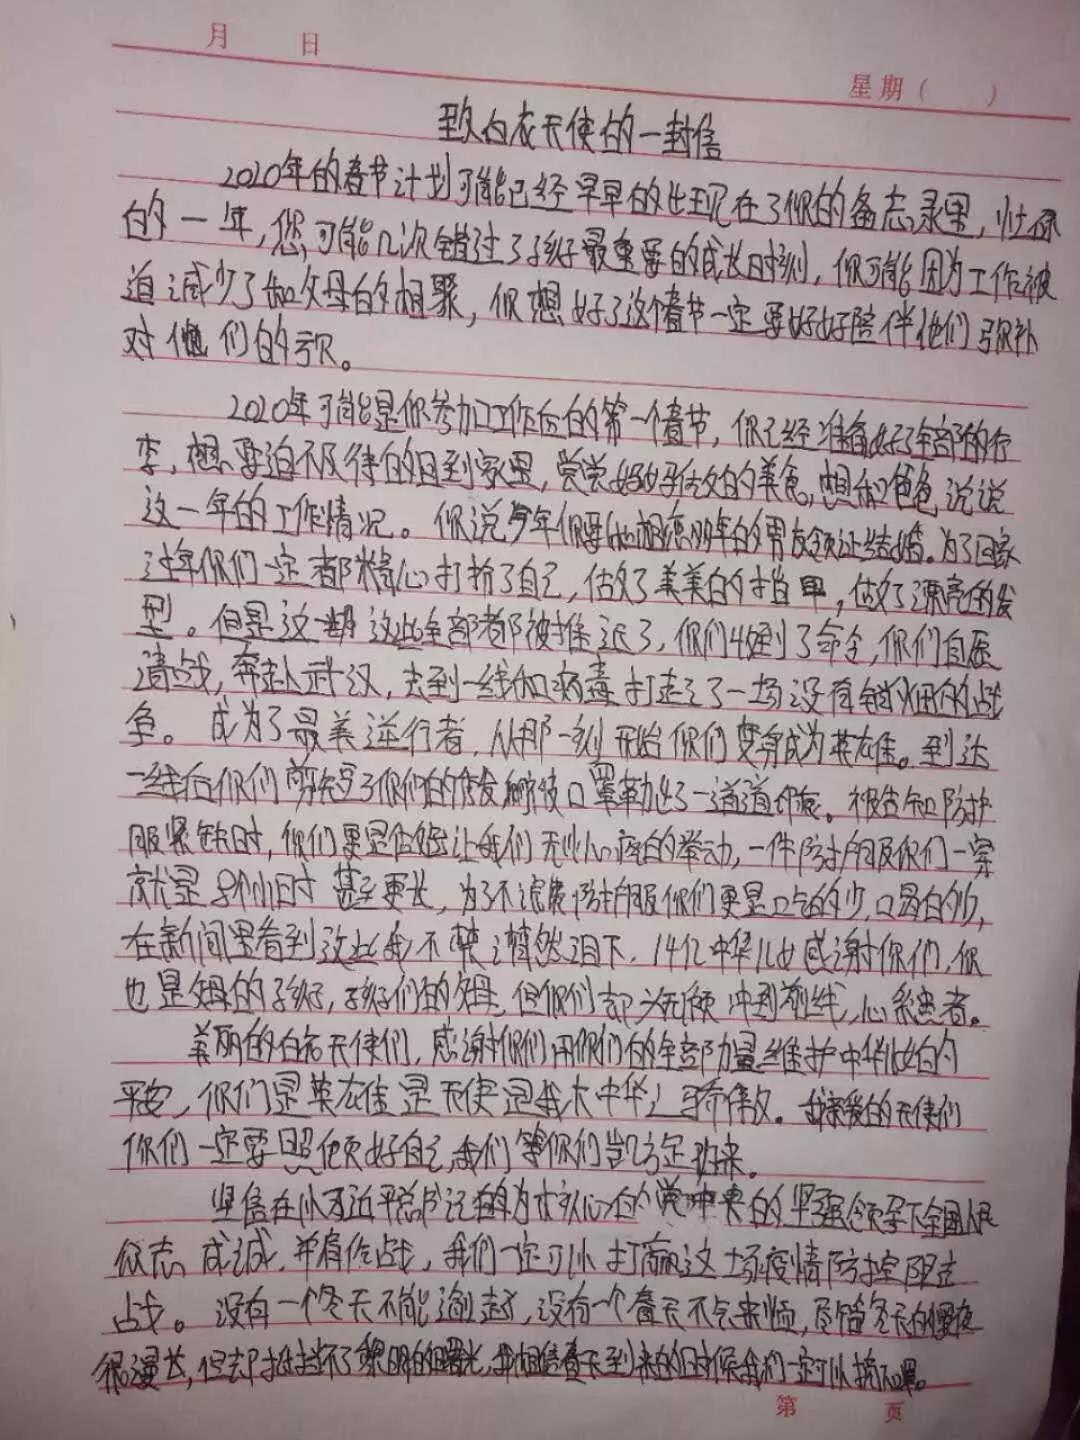 月 日
星期( )
致白衣天使的一封信
2020年的春节计划可能已经早早的出现在了你的备忘录里,忙碌
的一年,您可能几次错过了孩子最重要的成长时刻,你可能因为工作被
迫减少了和父母的相聚,你想好了这个春节一定要好好陪伴他们弥补
对他们的亏欠。
2020年可能是你参加工作后的第一个春节,你已经准备好了全部的行
李,想要迫不及待的回到家里,尝尝妈妈做的美食,想和爸爸说说
这一年的工作情况。你说今年你要和相恋多年的男友领证结婚。为了回家
过年你们一定都精心打扮了自己,做了美美的指甲,做了漂亮的发
型。但是这一切这些全部都被推迟了,你们收到了命令,你们自愿
请战,奔赴武汉,去到一线和病毒打起了一场没有销烟的战
争。成为了最美逆行者,从那一刻开始你们变身成为英雄。到达
一线后你们剪短了你们的长发 脸被口罩勒出了一道道印痕。被告知防护
服紧缺时,你们更是做出让我们无比心疼的举动,一件防护服你们一穿
就是8个小时甚至更长,为了不浪费防护服你们更是吃的少,喝的少,
在新闻里看到这些我不禁潸然泪下,14亿中华儿女感谢你们,你
也是父母的孩子,孩子们的父母,但你们却义无反顾冲到前线,心系患者。
美丽的白衣天使们,感谢你们用你们的全部力量维护中华儿女的
平安,你们是英雄是天使是我大中华之骄傲。我亲爱的天使们
你们一定要照顾好自己,我们等你们凯旋归来。
坚信在以习近平总书记为核心的党中央的坚强领导下全国人民
众志成诚,并肩作战,我们一定可以打赢这场疫情防控阻击
战。没有一个冬天不能逾越,没有一个春天不会来临,尽管冬天的黑夜
很漫长,但却抵挡不了黎明的曙光,我相信春天到来的时候我们一定可以摘下口罩。
第 页